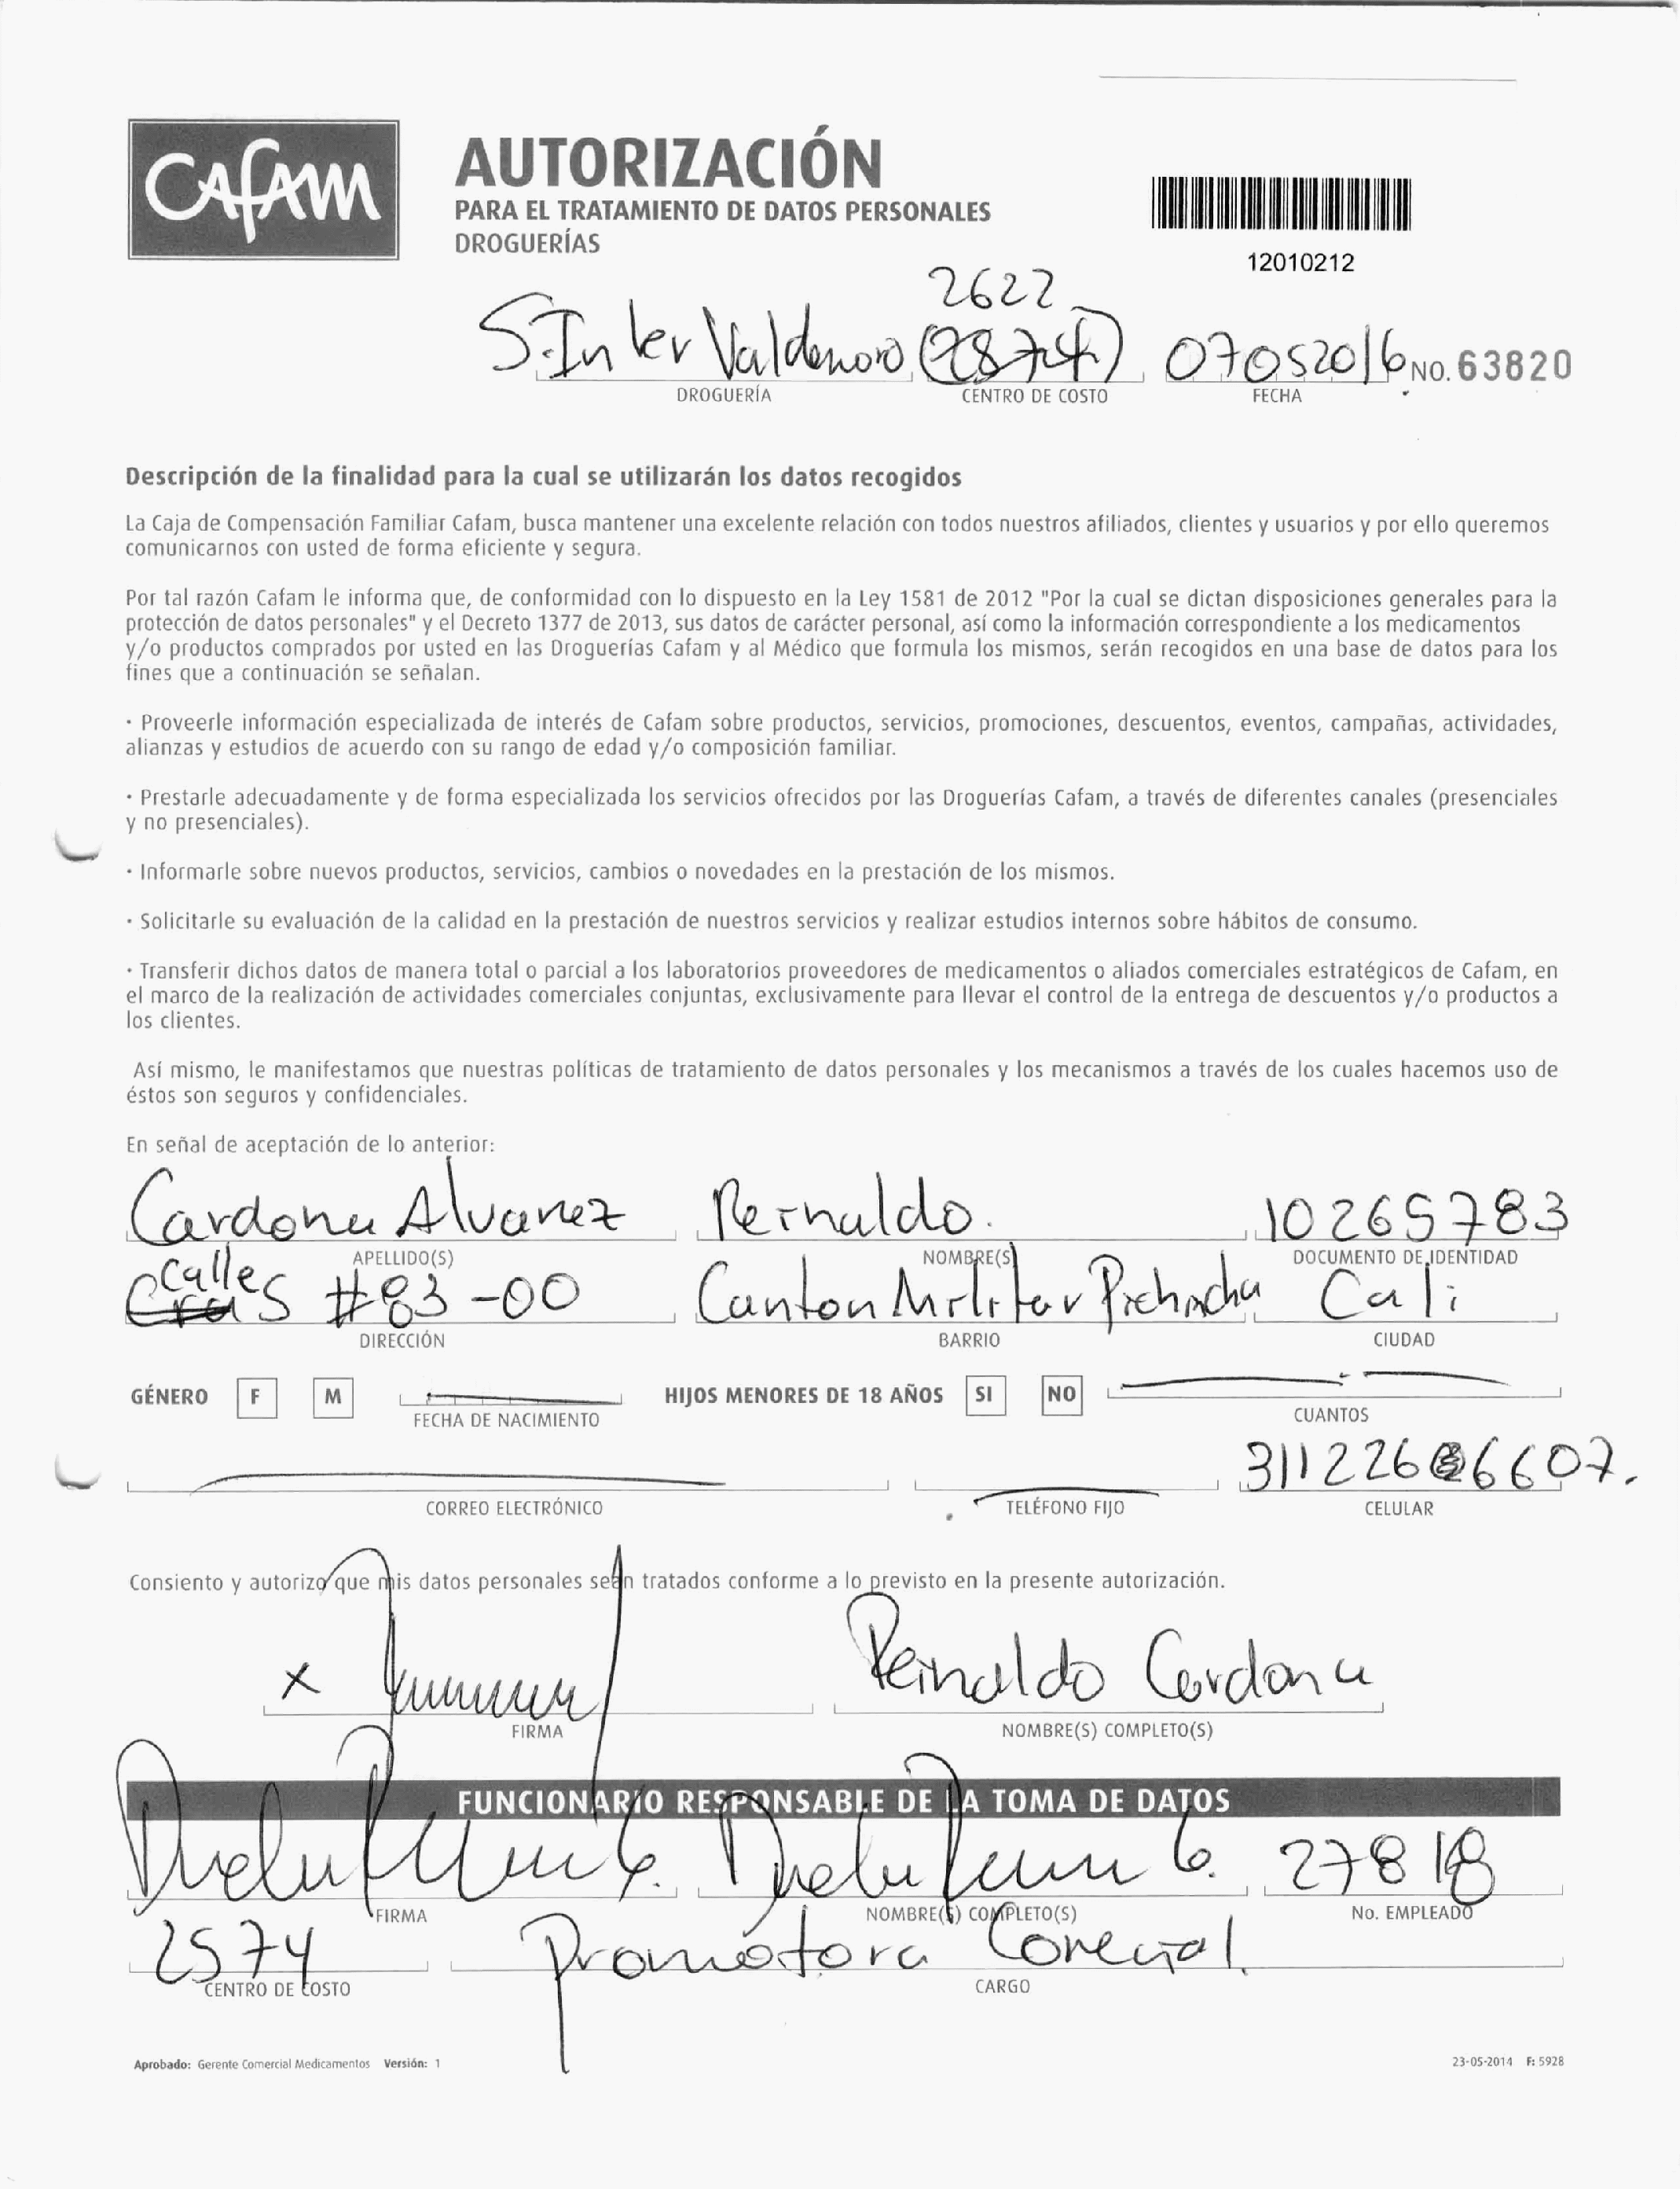 CAFAM
AUTORIZACIÓN
PARA EL TRATAMIENTO DE DATOS PERSONALES
DROGUERÍAS
12010212
2622
S.Inter Valdenoro 07052016 NO. 63820
DROGUERÍA CENTRO DE COSTO FECHA
Descripción de la finalidad para la cual se utilizarán los datos recogidos
La Caja de Compensación Familiar Cafam, busca mantener una excelente relación con todos nuestros afiliados, clientes y usuarios y por ello queremos
comunicarnos con usted de forma eficiente y segura.
Por tal razón Cafam le informa que, de conformidad con lo dispuesto en la Ley 1581 de 2012 "Por la cual se dictan disposiciones generales para la
protección de datos personales" y el Decreto 1377 de 2013, sus datos de carácter personal, así como la información correspondiente a los medicamentos
y/o productos comprados por usted en las Droguerías Cafam y al Médico que formula los mismos, serán recogidos en una base de datos para los
fines que a continuación se señalan.
· Proveerle información especializada de interés de Cafam sobre productos, servicios, promociones, descuentos, eventos, campañas, actividades,
alianzas y estudios de acuerdo con su rango de edad y/o composición familiar.
· Prestarle adecuadamente y de forma especializada los servicios ofrecidos por las Droguerías Cafam, a través de diferentes canales (presenciales
y no presenciales).
· Informarle sobre nuevos productos, servicios, cambios o novedades en la prestación de los mismos.
· Solicitarle su evaluación de la calidad en la prestación de nuestros servicios y realizar estudios internos sobre hábitos de consumo.
· Transferir dichos datos de manera total o parcial a los laboratorios proveedores de medicamentos o aliados comerciales estratégicos de Cafam, en
el marco de la realización de actividades comerciales conjuntas, exclusivamente para llevar el control de la entrega de descuentos y/o productos a
los clientes.
Así mismo, le manifestamos que nuestras políticas de tratamiento de datos personales y los mecanismos a través de los cuales hacemos uso de
éstos son seguros y confidenciales.
En señal de aceptación de lo anterior:
Cardona Alvarez Reinaldo. 10265783
APELLIDO(S) NOMBRE(S) DOCUMENTO DE IDENTIDAD
Calle5 #83-00 Canton Militar Pichincha Cali
DIRECCIÓN BARRIO CIUDAD
GÉNERO F M HIJOS MENORES DE 18 AÑOS SI NO
FECHA DE NACIMIENTO CUANTOS
CORREO ELECTRÓNICO TELÉFONO FIJO CELULAR
Consiento y autorizo que mis datos personales sean tratados conforme a lo previsto en la presente autorización.
x Reinaldo Cardona
FIRMA NOMBRE(S) COMPLETO(S)
FUNCIONARIO RESPONSABLE DE LA TOMA DE DATOS
FIRMA NOMBRE(S) COMPLETO(S) No. EMPLEADO
2574 Promotora Comercial
CENTRO DE COSTO CARGO
Aprobado: Gerente Comercial Medicamentos Versión: 1 23-05-2014 F: 5928